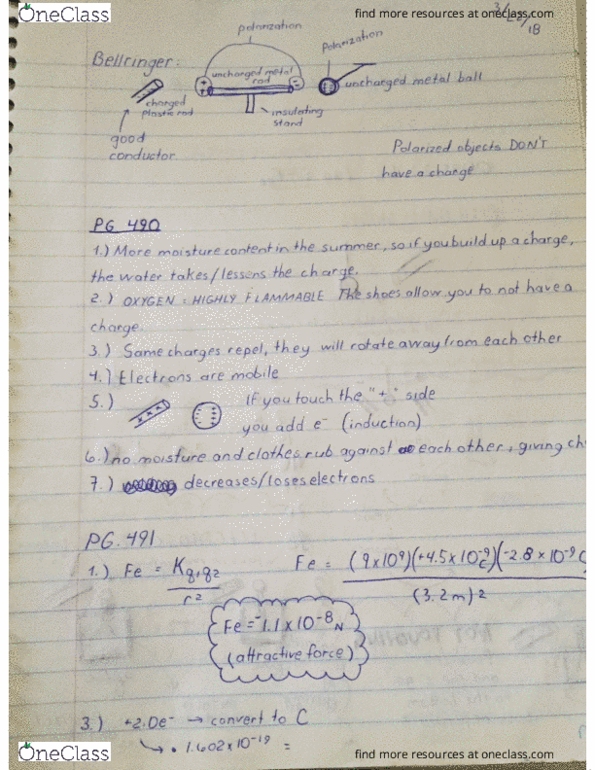 OneClass
find more resources at oneclass.com
3/22/18
polarization
Polarization
Bellringer:
uncharged metal rod
uncharged metal ball
+
-
charged plastic rod
insulating stand
good conductor
Polarized objects DON'T
have a charge
PG 490
1.) More moisture content in the summer, so if you build up a charge,
the water takes/lessens the charge.
2.) OXYGEN = HIGHLY FLAMMABLE The shoes allow you to not have a
charge.
3.) Same charges repel, they will rotate away from each other
4.) Electrons are mobile
5.) If you touch the "+" side
you add e⁻ (induction)
6.) no moisture and clothes rub against each other, giving ch
7.) decreases/loses electrons
PG. 491
1.) Fe = Kq₁q₂ Fe = (9x10⁹)(+4.5x10⁻⁹C)(-2.8x10⁻⁹C
r² (3.2m)²
Fe = -1.1x10⁻⁸N
(attractive force)
3.) +2.0e⁻ → convert to C
↳ • 1.602x10⁻¹⁹ =
OneClass
find more resources at oneclass.com